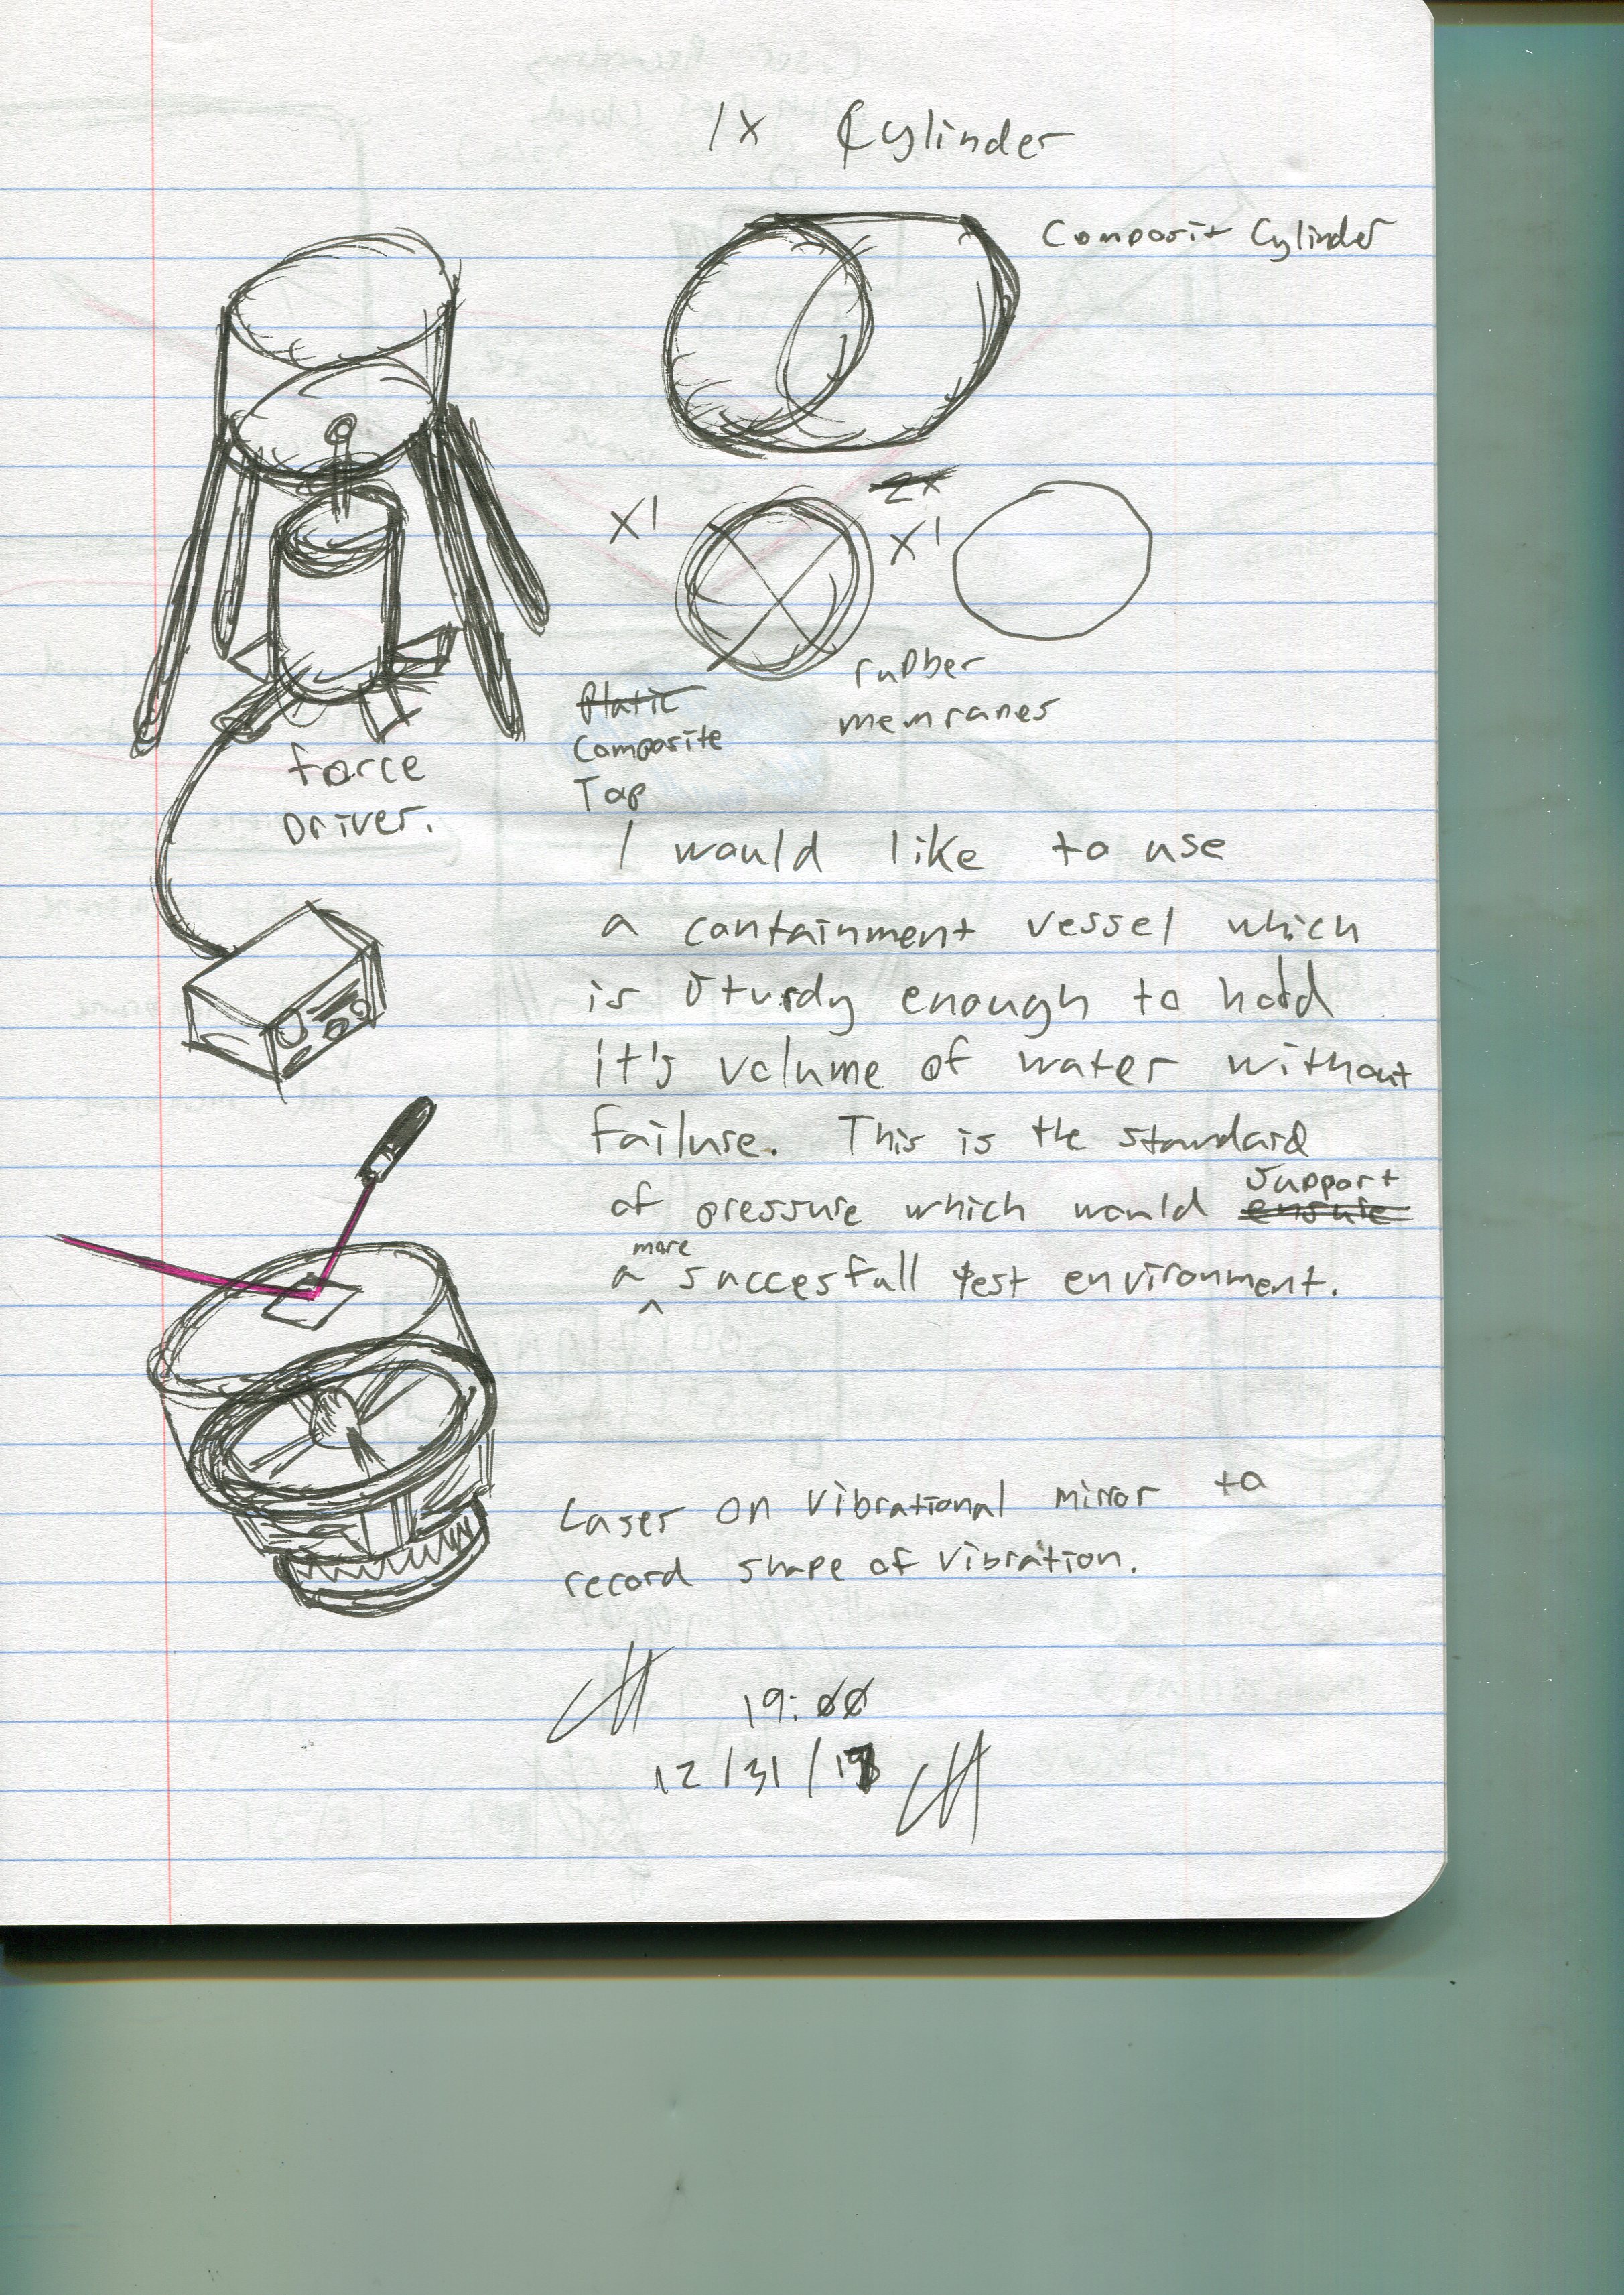 1x Cylinder
Composit Cylinder
x1
2x
x1
rubber
memranes
Platic
Composite
Top
Force
Driver.
I would like to use
a containment vessel which
is sturdy enough to hold
it's volume of water without
failure. This is the standard
of pressure which would ensure support
a more succesfull test environment.
Laser on vibrational mirror to
record shape of vibration.
19:00
12/31/